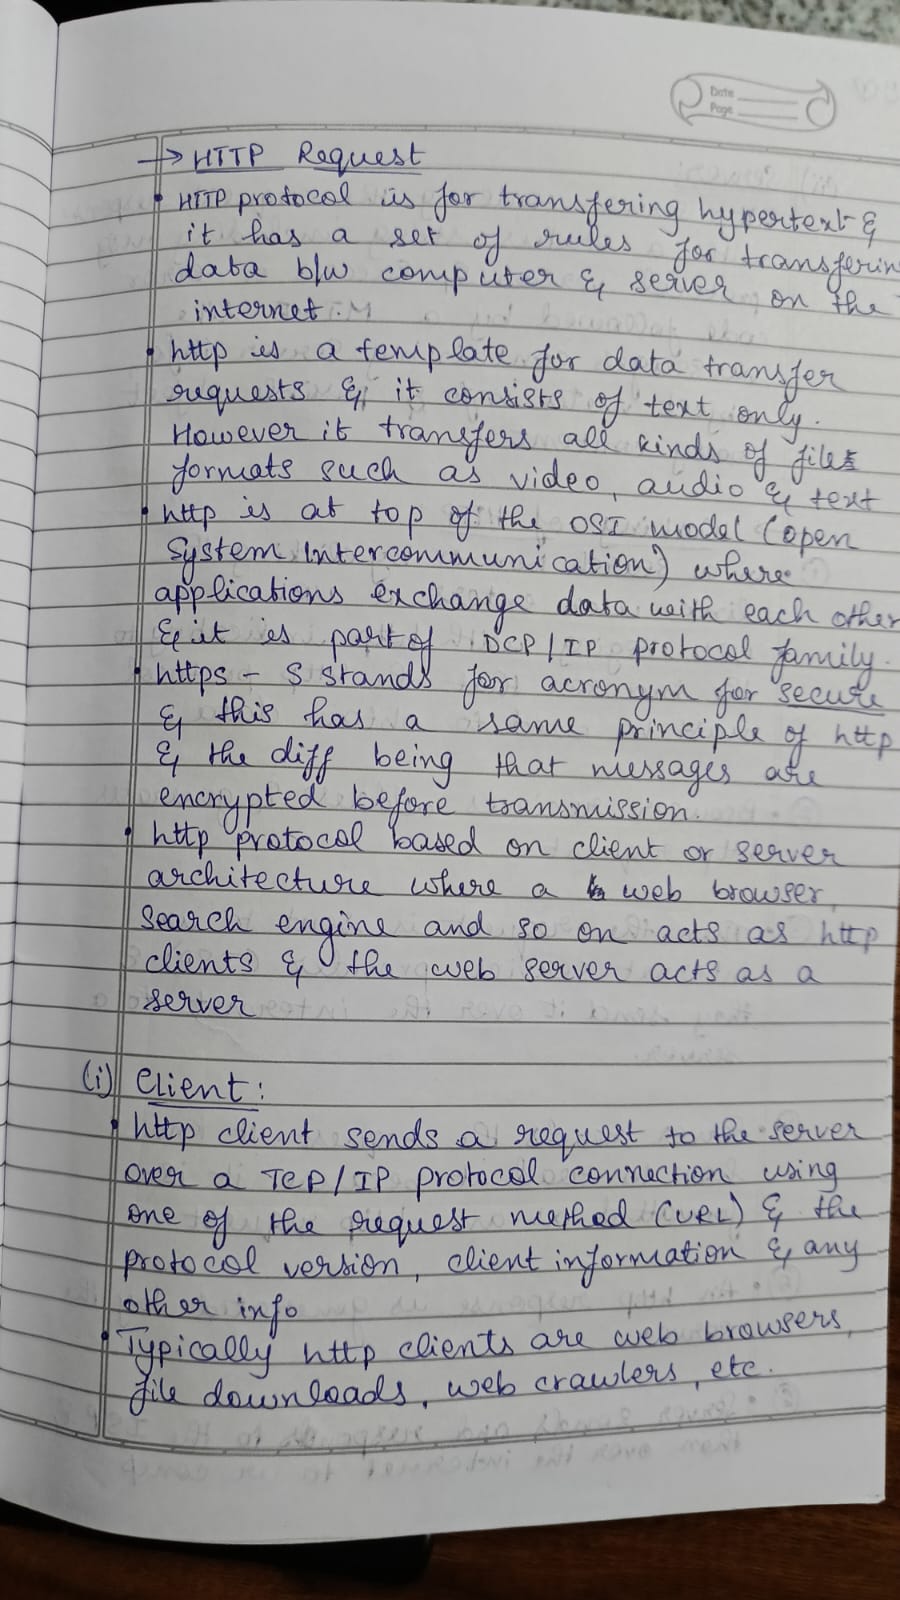 Date
Page
→ HTTP Request
• HTTP protocol is for transfering hypertext &
it has a set of rules for transferin
data b/w computer & server on the
internet.
• http is a template for data transfer
requests & it consists of text only.
However it transfers all kinds of files
formats such as video, audio & text
• http is at top of the OSI model (open
System Intercommunication) where
applications exchange data with each other
& it is part of DCP/IP protocol family.
• https - S stands for acronym for secure
& this has a same principle of http
& the diff being that messages are
encrypted before transmission.
• http protocol based on client or server
architecture where a web browser,
search engine and so on acts as http
clients & the web server acts as a
server
(i) Client:
• http client sends a request to the server
over a TCP/IP protocol connection using
one of the request method (URL) & the
protocol version, client information & any
other info
• Typically http clients are web browsers,
file downloads, web crawlers, etc.